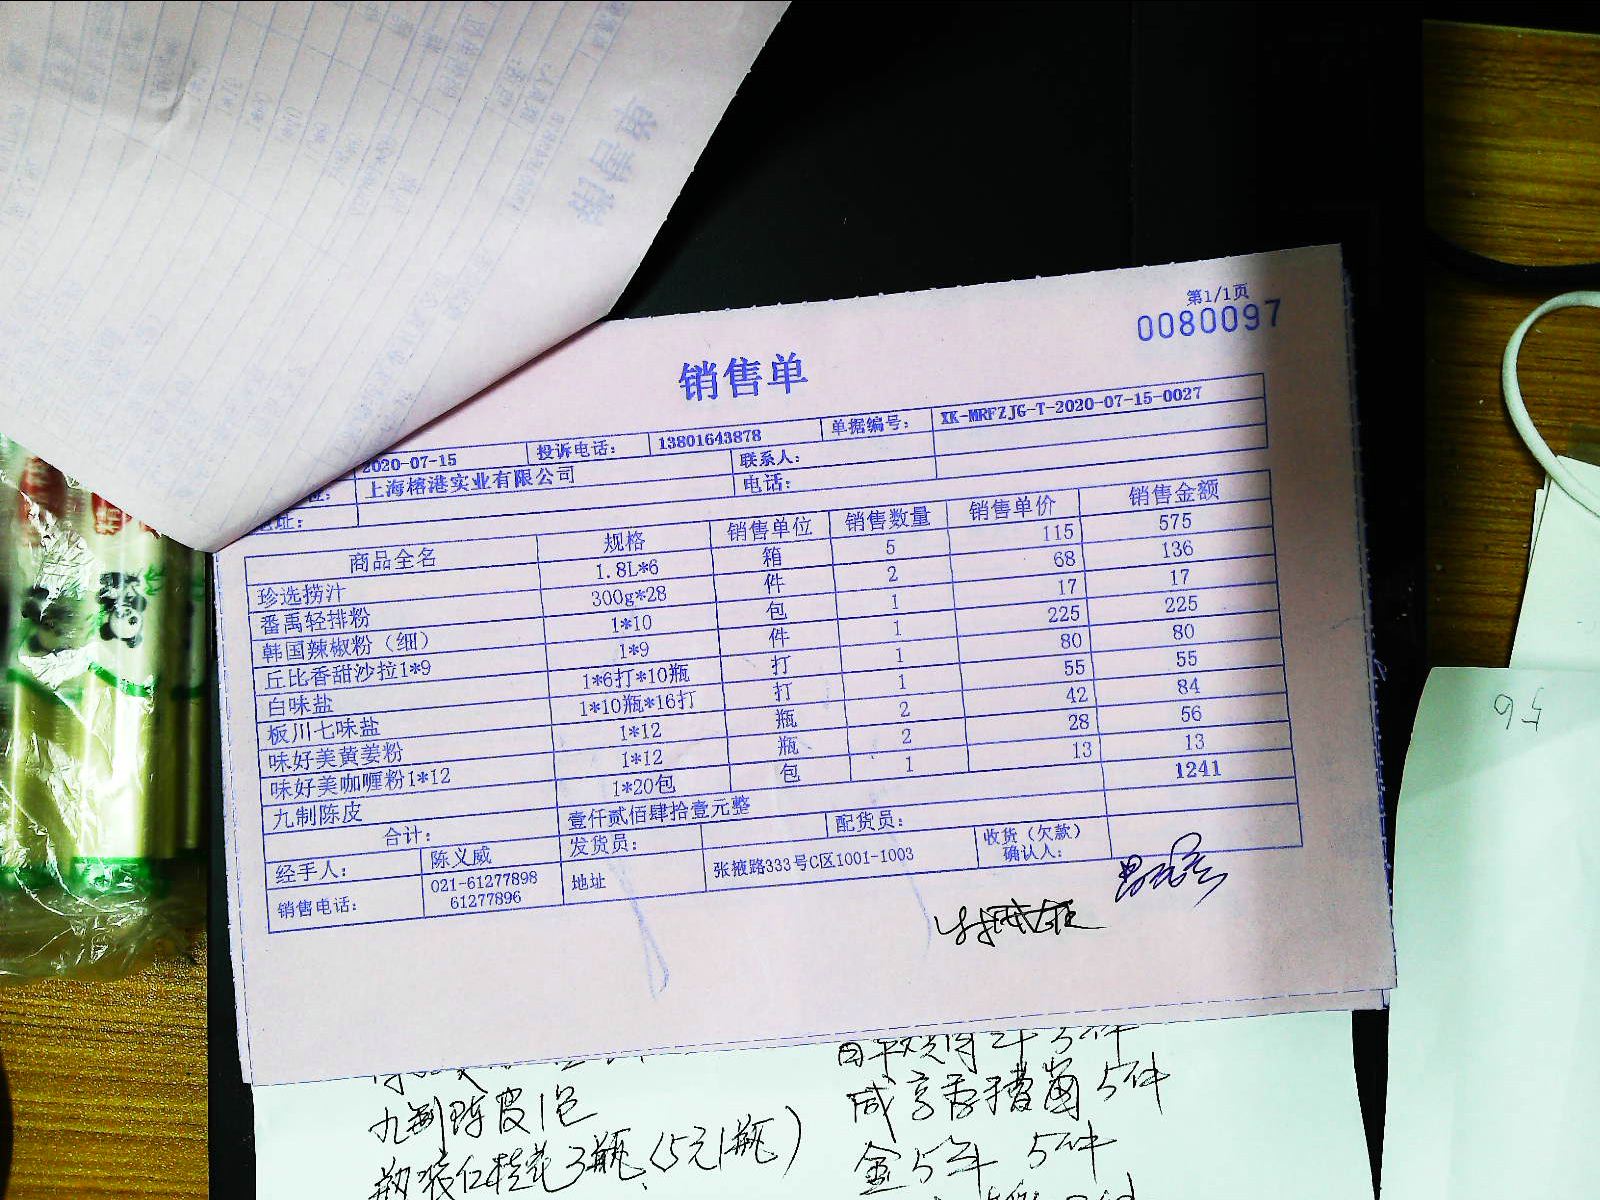 第1/1页
0080097
销售单
2020-07-15 投诉电话: 13801643878 单据编号: XK-MRFZJG-T-2020-07-15-0027
上海榕港实业有限公司 联系人:
地址: 电话:
商品全名 规格 销售单位 销售数量 销售单价 销售金额
珍选捞汁 1.8L*6 箱 5 115 575
番禹轻排粉 300g*28 件 2 68 136
韩国辣椒粉（细） 1*10 包 1 17 17
丘比香甜沙拉1*9 1*9 件 1 225 225
白味盐 1*6打*10瓶 打 1 80 80
板川七味盐 1*10瓶*16打 打 1 55 55
味好美黄姜粉 1*12 瓶 2 42 84
味好美咖喱粉1*12 1*12 瓶 2 28 56
九制陈皮 1*20包 包 1 13 13
合计: 壹仟贰佰肆拾壹元整 1241
经手人: 陈义威 发货员: 配货员: 收货（欠款）
确认人:
销售电话: 021-61277898
61277896 地址 张掖路333号C区1001-1003
九制陈皮1包
瓶装红桂花3瓶(5元1瓶)
咸亨香糟卤5件
金5年 5件
56